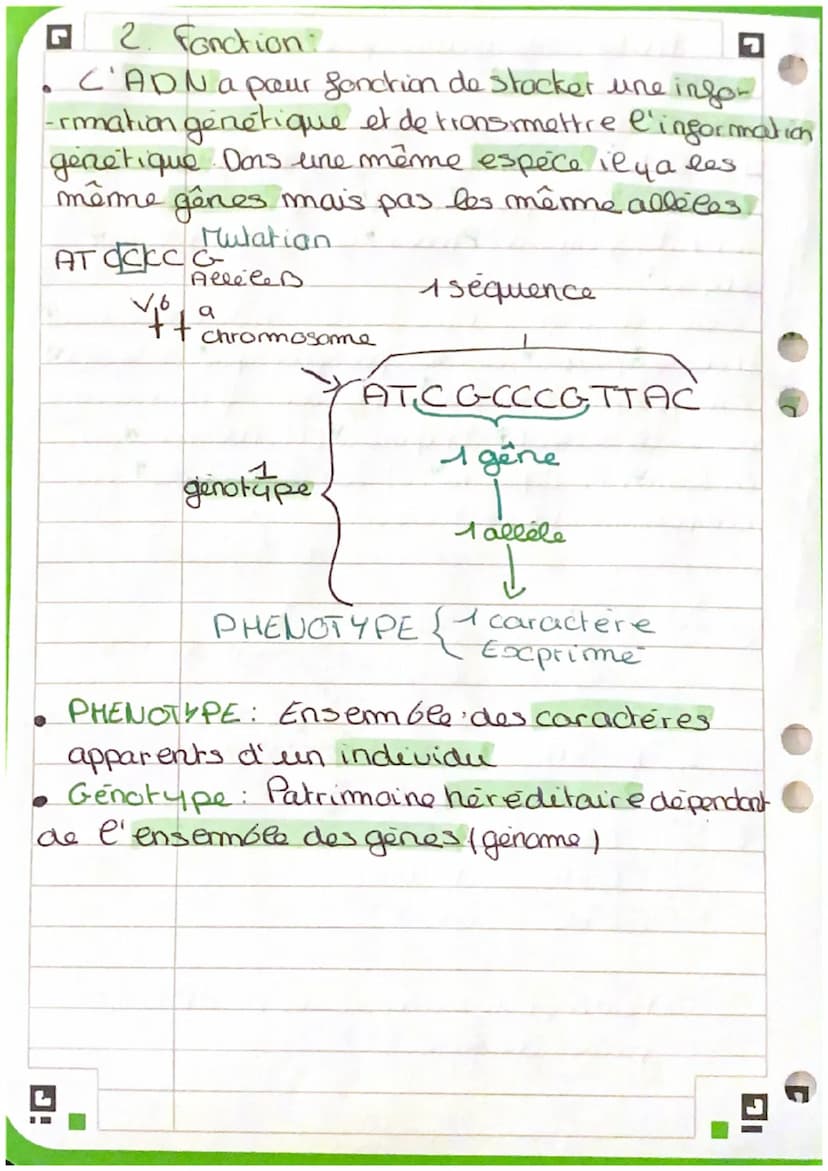 2. Fonction:
• L'ADN a pour fonction de stocker une infor-
-rmation génétique et de transmettre l'information
génétique. Dans une même espèce il y a les
même gênes mais pas les même allèles.
Mutation
Allèle B
V, b
a
chromosome
1 séquence
ATCGCCCGTTAC
1 gêne
1
génotype
1 allèle
PHENOTYPE { 1 caractère
Exprimé
• PHENOTYPE : Ensemble des caractères
apparents d'un individu
• Génotype : Patrimoine héréditaire dépendant
de l'ensemble des gènes (génome)